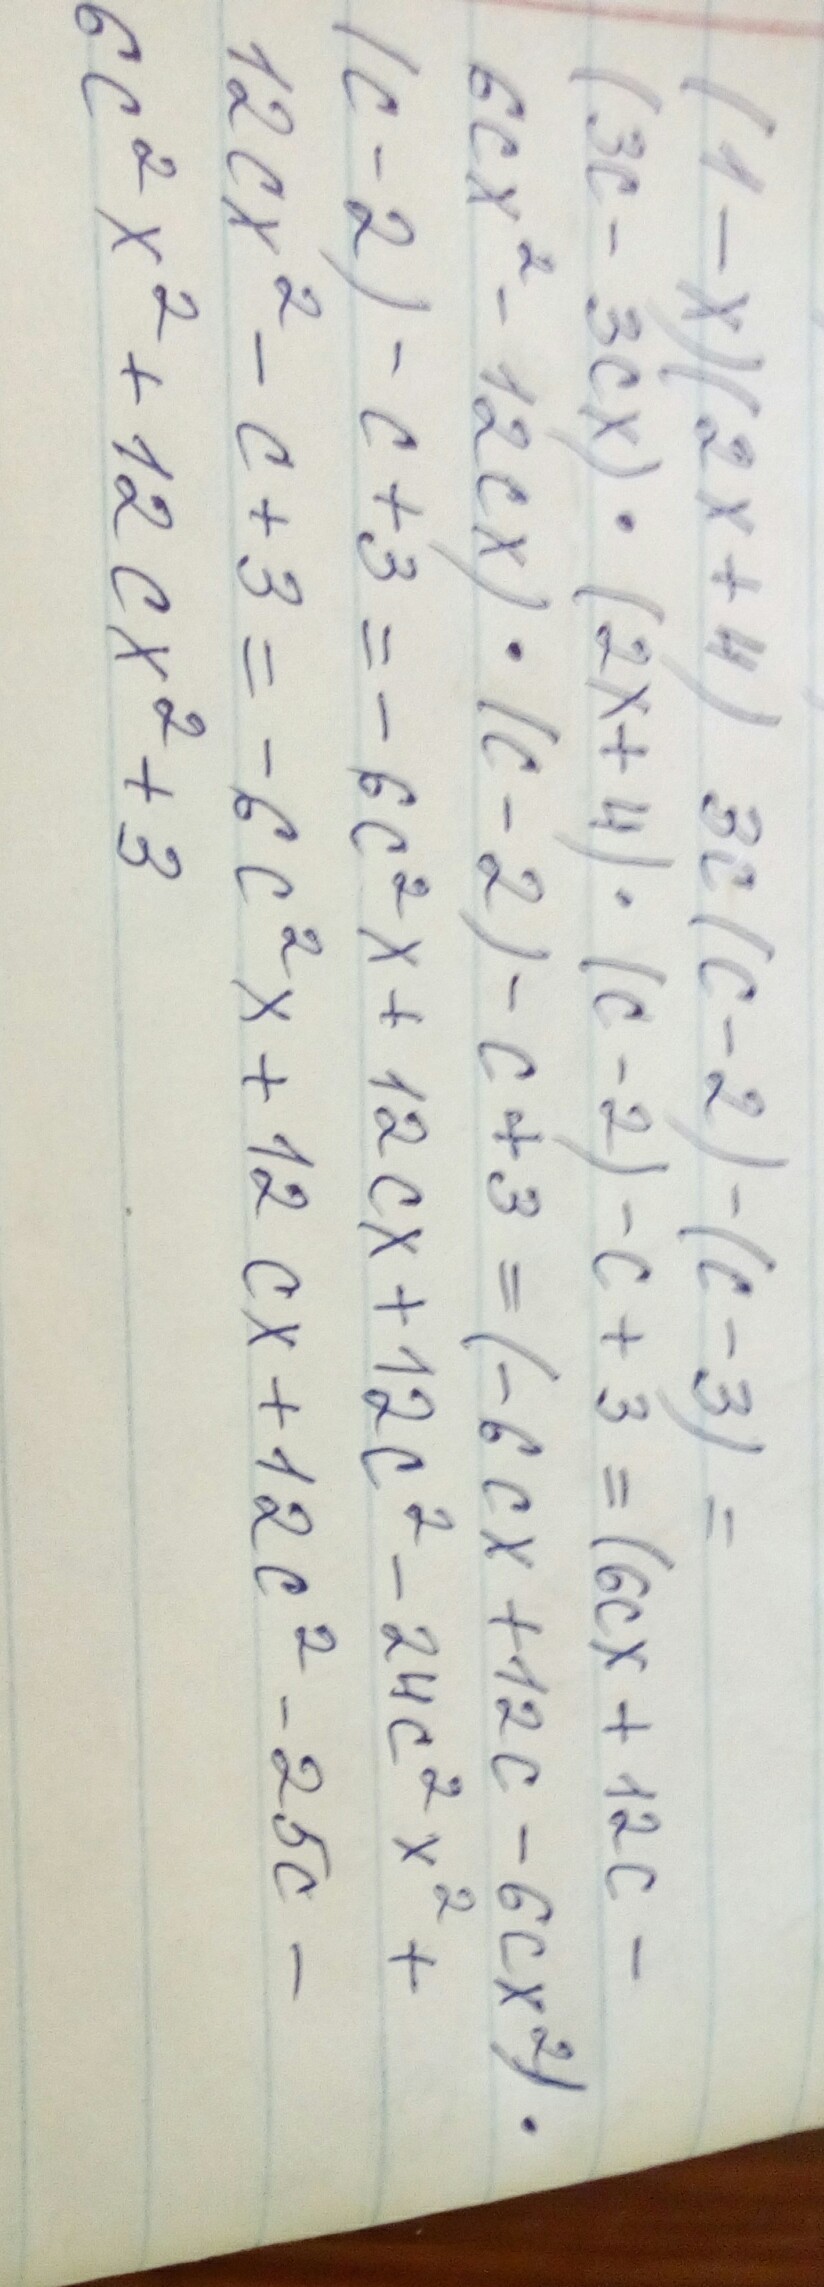 (1-x)(2x+4) 3c(c-2)-(c-3)=
(3c-3cx)·(2x+4)·(c-2)-c+3=(6cx+12c-
6cx²-12cx)·(c-2)-c+3=(-6cx+12c-6cx²)·
(c-2)-c+3=-6c²x+12cx+12c²-24c²x²+
12cx²-c+3=-6c²x+12cx+12c²-25c-
6c²x²+12cx²+3